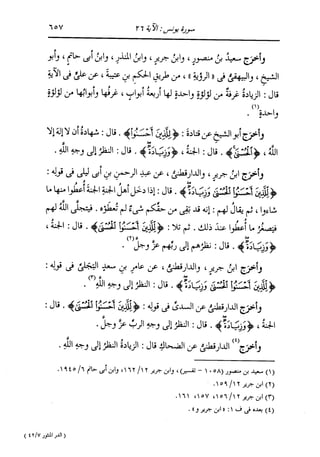 سورة يونس : الآية ٢٦ ٦٥٧
وأخرَج سعيدُ بنُ منصورٍ ، وابنُ جريرٍ ، وابنُ المنذرِ ، وابنُ أبى حاتمٍ ، وأبو
الشيخِ ، والبيهقىُّ فى « الرؤية » ، من طريقِ الحكمِ بنِ عتيبةَ ، عن علىٍّ فى الآيةِ
قال : الزيادةُ غرفةٌ من لؤلؤةٍ واحدةٍ لها أربعةُ أبوابٍ ، غرفُها وأبوابُها من لؤلؤةٍ
واحدةٍ(١) .
وأخرَج أبو الشيخِ عن قتادةَ : ﴿ لِّلَّذِينَ أَحْسَنُوا۟ ﴾ . قال : شهادةُ أن لا إلهَ إلا
اللهُ ، ﴿ ٱلْحُسْنَىٰ ﴾ . قال : الجنةُ ، ﴿ وَزِيَادَةٌ ﴾ . قال : النظرُ إلى وجهِ اللهِ .
وأخرَج ابنُ جريرٍ ، والدارقطنىُّ ، عن عبدِ الرحمنِ بنِ أبى ليلى فى قولِه :
﴿ لِّلَّذِينَ أَحْسَنُوا۟ ٱلْحُسْنَىٰ وَزِيَادَةٌ ﴾ . قال : إذا دخَل أهلُ الجنةِ الجنةَ أُعطُوا منها ما
شاءوا ، ثم يقالُ لهم : إنه قد بَقِى من حقِّكم شىءٌ لم تُعطَوْه . فيتجلَّى اللهُ لهم
فيَصغُرُ ما أُعطُوا عندَ ذلك . ثم تلا : ﴿ لِّلَّذِينَ أَحْسَنُوا۟ ٱلْحُسْنَىٰ ﴾ . قال : الجنةُ ،
﴿ وَزِيَادَةٌ ﴾ . قال : نظرُهم إلى ربِّهم عزَّ وجلَّ(٢) .
وأخرَج ابنُ جريرٍ ، والدارقطنىُّ ، عن عامرِ بنِ سعدٍ البَجَلىِّ فى قولِه :
﴿ لِّلَّذِينَ أَحْسَنُوا۟ ٱلْحُسْنَىٰ وَزِيَادَةٌ ﴾ . قال : النظرُ إلى وجهِ اللهِ(٣) .
وأخرَج الدارقطنىُّ عن السدىِّ فى قولِه : ﴿ لِّلَّذِينَ أَحْسَنُوا۟ ٱلْحُسْنَىٰ ﴾ . قال :
الجنةُ ، ﴿ وَزِيَادَةٌ ﴾ . قال : النظرُ إلى وجهِ الربِّ عزَّ وجلَّ .
وأخرَج(٤) الدارقطنىُّ عن الضحاكِ قال : الزيادةُ النظرُ إلى وجهِ اللهِ .
(١) سعيد بن منصور (١٠٥٨ - تفسير) ، وابن جرير ١٢/ ١٦٢، وابن أبى حاتم ٦/ ١٩٤٥.
(٢) ابن جرير ١٢/ ١٥٩.
(٣) ابن جرير ١٢/ ١٥٦، ١٥٧، ١٦١.
(٤) بعده فى ف ١: « ابن جرير و ».
( الدر المنثور ٤٢/٧ )